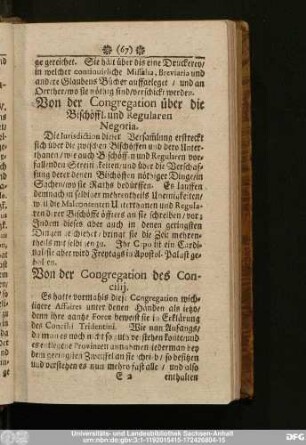 (67)
ge gereichet. Sie hält über dis eine Druckerey/
in welcher continuirliche Missalia, Breviaria und
andere Glaubens Bücher auffgeleget / und an
Oerther/wo sie nöthig sind/verschickt werden.
Von der Congregation über die
Bischöffl. und Regularen
Negotia.
Die Jurisdiction dieser Versamlung erstreckt
sich über die zwischen Bischöffen und dero Unter-
thanen/ wie auch Bischöffen und Regularen vor-
fallenden Streitigkeiten/ und über die
derer denen Bischöffen nöthiger Dinge/in
Sachen/wo sie Raths bedürffen. Es lauffen
demnach an selbiger mehrentheils Uneinigkeiten/
weil die Malcontenten Unterthanen und Regula-
ren ihrer Bischöffe öffters an sie schreiben / vor;
Indem dieses aber auch in denen geringsten
Dingen geschiehet / bringt sie die Zeit mehren-
theils mit selbigen zu. Ihr Capo ist ein Cardi-
nal/ sie aber wird Freytags im Apostol. Palast ge-
halten.
Von der Congregation des Con-
cilij.
Es hatte vormahls diese Congregation wich-
tigere Affairen unter denen Händen als jetzo/
denn ihre gantze Force beweist sie in Erklärung
des Concilii Tridentini. Wie nun Anfangs/
da man es noch nicht so gut verstehen konte/und
es entlegene Provincen annahmen/ jederman bey
dem geringsten Zweiffel an sie schrieb/ so besitzen
und verstehen es nun mehro fast alle / und also
E 2 enthalten
Universitäts- und Landesbibliothek Sachsen-Anhalt
urn:nbn:de:gbv:3:1-1192015415-172426804-15
DFG